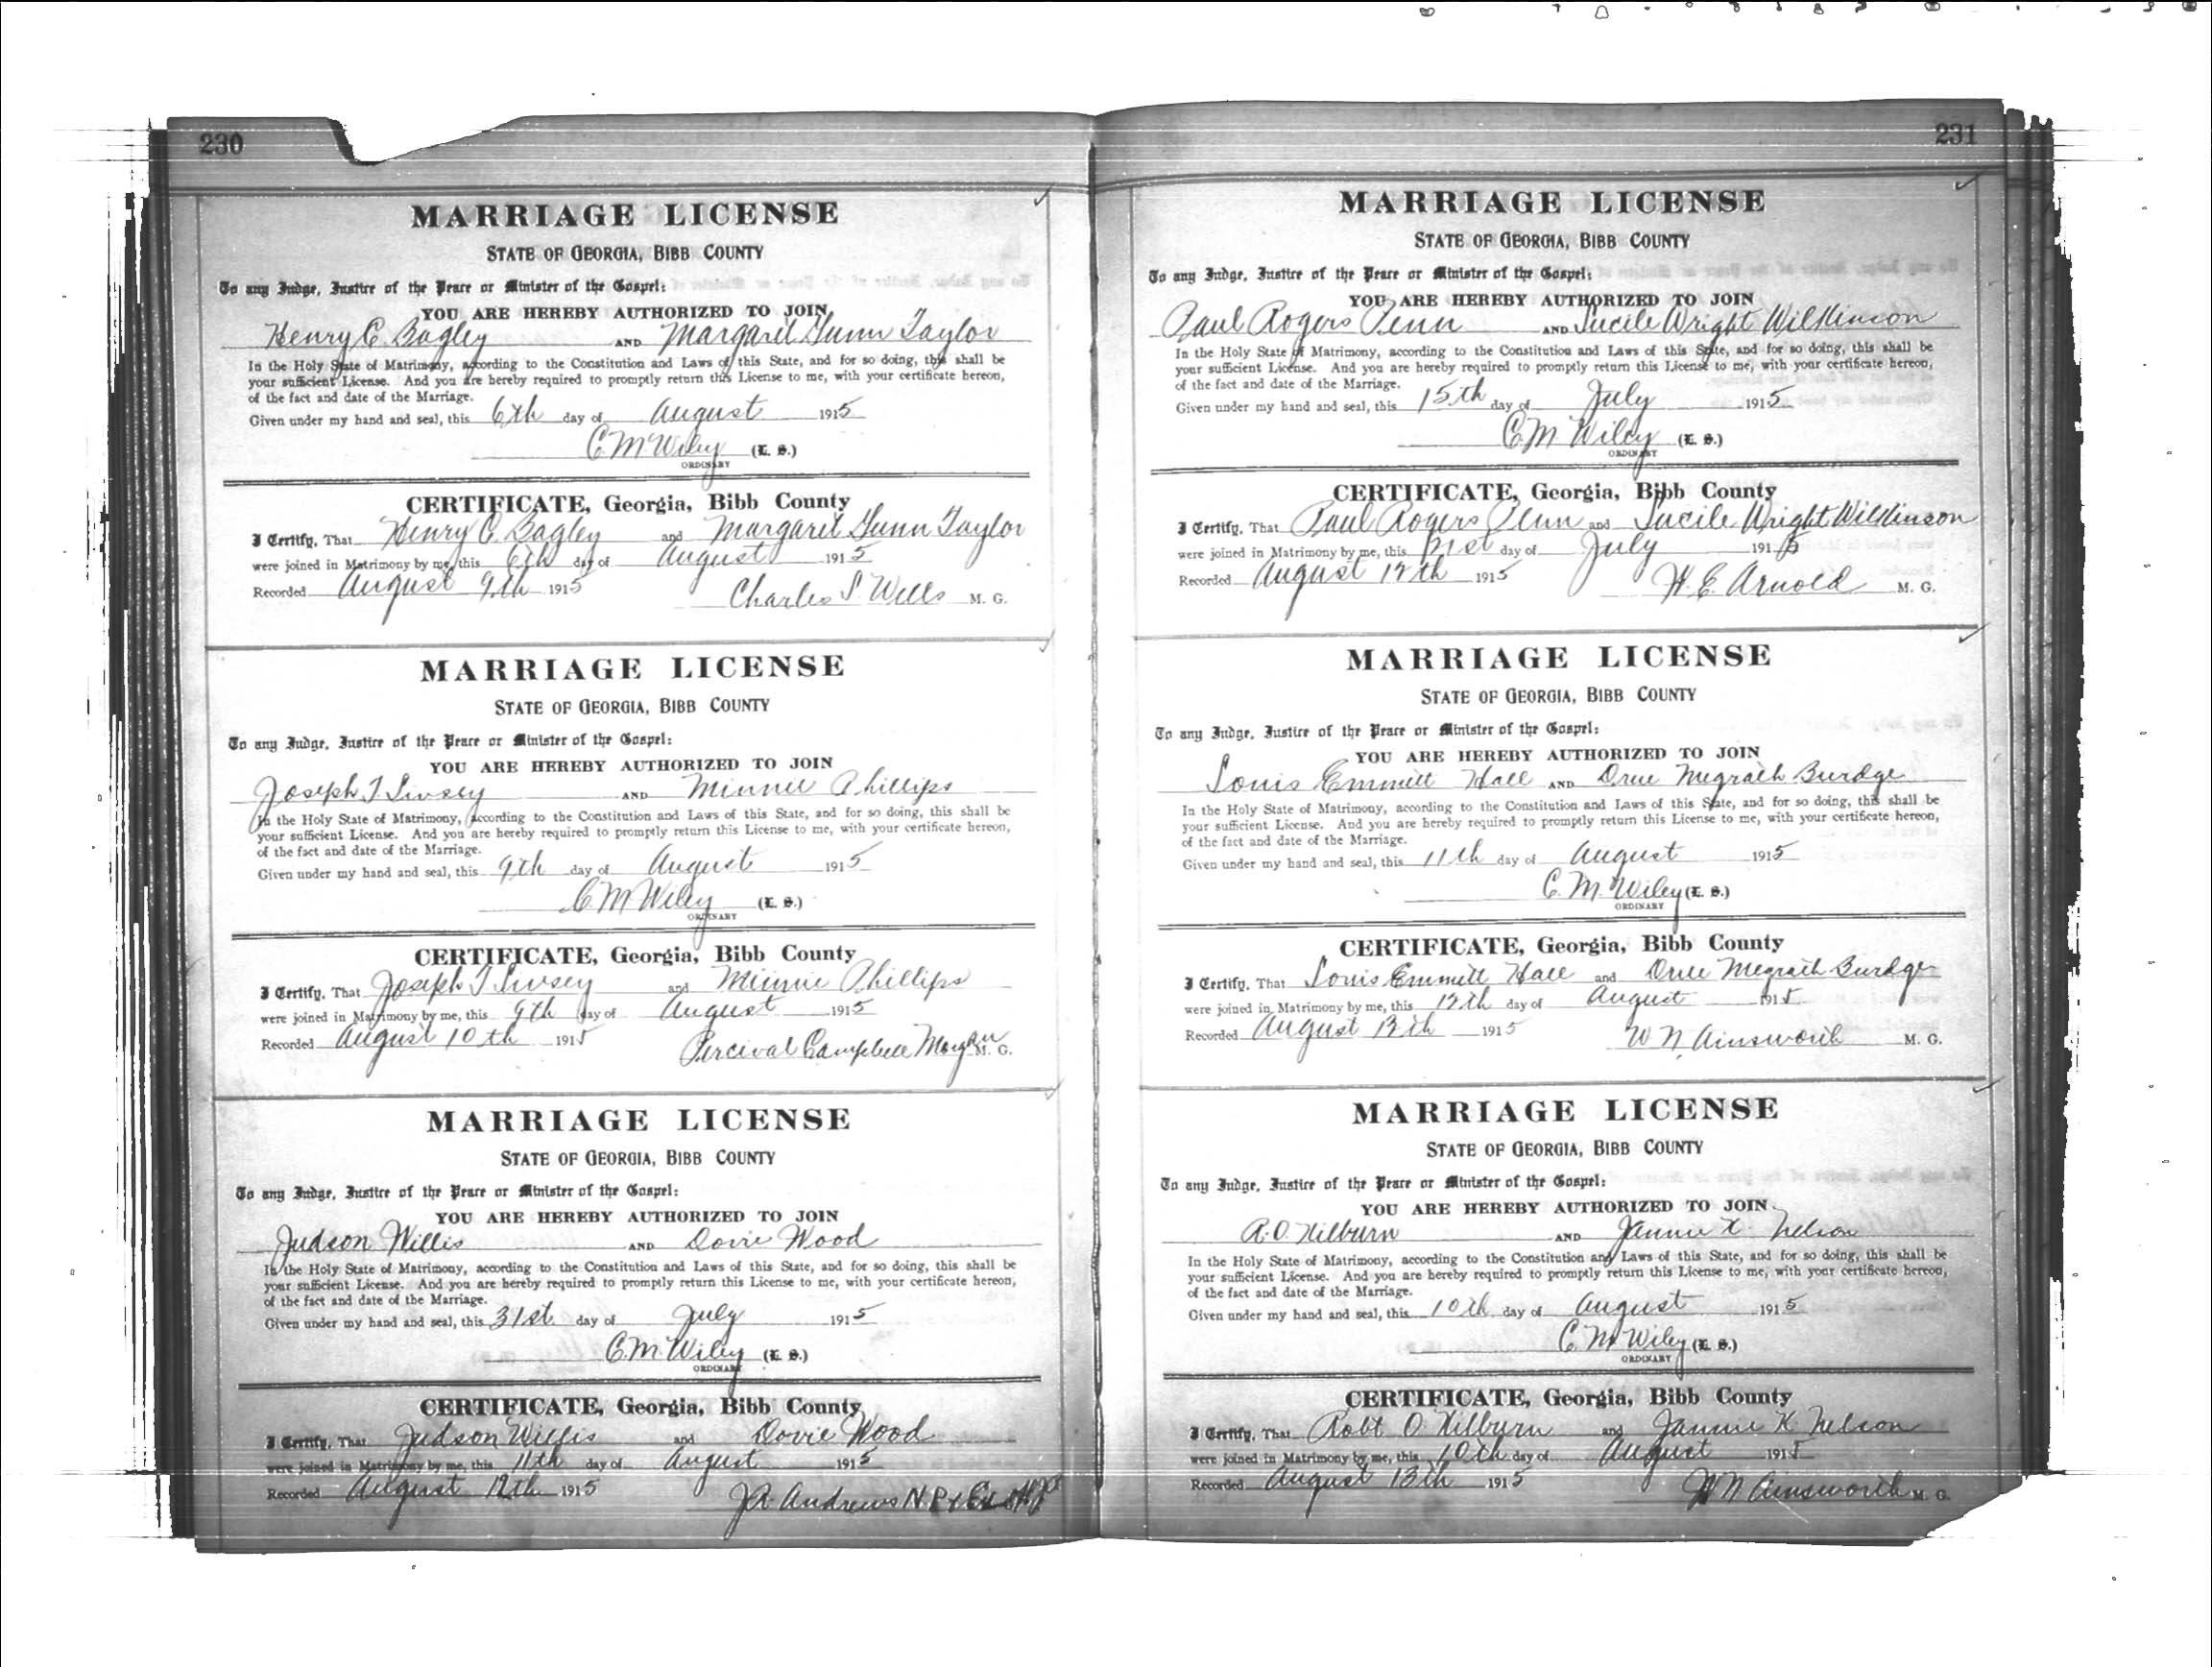 230
MARRIAGE LICENSE
STATE OF GEORGIA, BIBB COUNTY
To any Judge, Justice of the Peace or Minister of the Gospel:
YOU ARE HEREBY AUTHORIZED TO JOIN
Henry C. Bagley AND Margaret Gunn Taylor
In the Holy State of Matrimony, according to the Constitution and Laws of this State, and for so doing, this shall be
your sufficient License. And you are hereby required to promptly return this License to me, with your certificate hereon,
of the fact and date of the Marriage.
Given under my hand and seal, this 6th day of August 1915
C. M Wiley (L. S.)
ORDINARY
CERTIFICATE, Georgia, Bibb County
I Certify, That Henry C. Bagley and Margaret Gunn Taylor
were joined in Matrimony by me, this 6th day of August 1915
Recorded August 9th 1915 Charles S. Wells M. G.
MARRIAGE LICENSE
STATE OF GEORGIA, BIBB COUNTY
To any Judge, Justice of the Peace or Minister of the Gospel:
YOU ARE HEREBY AUTHORIZED TO JOIN
Joseph T. Livsey AND Minnie Phillips
In the Holy State of Matrimony, according to the Constitution and Laws of this State, and for so doing, this shall be
your sufficient License. And you are hereby required to promptly return this License to me, with your certificate hereon,
of the fact and date of the Marriage.
Given under my hand and seal, this 9th day of August 1915
C. M Wiley (L. S.)
ORDINARY
CERTIFICATE, Georgia, Bibb County
I Certify, That Joseph T Livsey and Minnie Phillips
were joined in Matrimony by me, this 9th day of August 1915
Recorded August 10th 1915 Percival Campbell Morgan M. G.
MARRIAGE LICENSE
STATE OF GEORGIA, BIBB COUNTY
To any Judge, Justice of the Peace or Minister of the Gospel:
YOU ARE HEREBY AUTHORIZED TO JOIN
Judson Willis AND Dovie Wood
In the Holy State of Matrimony, according to the Constitution and Laws of this State, and for so doing, this shall be
your sufficient License. And you are hereby required to promptly return this License to me, with your certificate hereon,
of the fact and date of the Marriage.
Given under my hand and seal, this 31st day of July 1915
C. M. Wiley (L. S.)
ORDINARY
CERTIFICATE, Georgia, Bibb County
I Certify, That Judson Willis and Dovie Wood
were joined in Matrimony by me, this 11th day of August 1915
Recorded August 12th 1915 J. A. Andrews N. P. & Ex off J P
231
MARRIAGE LICENSE
STATE OF GEORGIA, BIBB COUNTY
To any Judge, Justice of the Peace or Minister of the Gospel:
YOU ARE HEREBY AUTHORIZED TO JOIN
Paul Rogers Penn AND Lucile Wright Wilkinson
In the Holy State of Matrimony, according to the Constitution and Laws of this State, and for so doing, this shall be
your sufficient License. And you are hereby required to promptly return this License to me, with your certificate hereon,
of the fact and date of the Marriage.
Given under my hand and seal, this 15th day of July 1915
C. M Wiley (L. S.)
ORDINARY
CERTIFICATE, Georgia, Bibb County
I Certify, That Paul Rogers Penn and Lucile Wright Wilkinson
were joined in Matrimony by me, this 21st day of July 1915
Recorded August 12th 1915 W. E. Arnold M. G.
MARRIAGE LICENSE
STATE OF GEORGIA, BIBB COUNTY
To any Judge, Justice of the Peace or Minister of the Gospel:
YOU ARE HEREBY AUTHORIZED TO JOIN
Louis Emmitt Hall AND Drue Megrath Burdge
In the Holy State of Matrimony, according to the Constitution and Laws of this State, and for so doing, this shall be
your sufficient License. And you are hereby required to promptly return this License to me, with your certificate hereon,
of the fact and date of the Marriage.
Given under my hand and seal, this 11th day of August 1915
C. M. Wiley (L. S.)
ORDINARY
CERTIFICATE, Georgia, Bibb County
I Certify, That Louis Emmitt Hall and Drue Megrath Burdge
were joined in Matrimony by me, this 12th day of August 1915
Recorded August 13th 1915 W N. Ainsworth M. G.
MARRIAGE LICENSE
STATE OF GEORGIA, BIBB COUNTY
To any Judge, Justice of the Peace or Minister of the Gospel:
YOU ARE HEREBY AUTHORIZED TO JOIN
R. O. Kilburn AND Jannie K. Nelson
In the Holy State of Matrimony, according to the Constitution and Laws of this State, and for so doing, this shall be
your sufficient License. And you are hereby required to promptly return this License to me, with your certificate hereon,
of the fact and date of the Marriage.
Given under my hand and seal, this 10th day of August 1915
C. M Wiley (L. S.)
ORDINARY
CERTIFICATE, Georgia, Bibb County
I Certify, That Robt O. Kilburn and Jannie K. Nelson
were joined in Matrimony by me, this 10th day of August 1915
Recorded August 13th 1915 W N Ainsworth M. G.